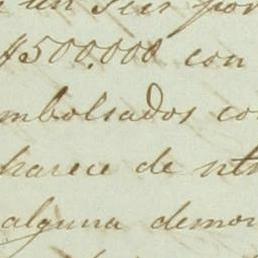 un Seis por
$500.000 con
mbolsados co
parece de ntr
alguna demor